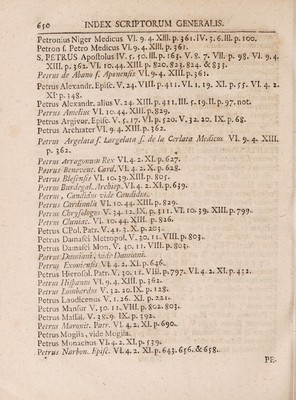 650 INDEX SCRIPTORUM GENERALIS.
Petronius Niger Medicus VI. 9. 4. XIII. p. 361. IV. 3. 6. III. p. 100.
Petron s. Petro Medicus VI. 9. 4. XIII. p. 361.
S. PETRUS Apostolus IV. 5. 10. III. p. 163. V. 8. 7. VII. p. 98. VI. 9. 4.
XIII. p. 362. VI. 10. 44. XIII. p. 820. 823. 824. & 833.
Petrus de Abano s. Aponensis VI. 9. 4. XIII. p. 361.
Petrus Alexandr. Episc. V. 24. VIII. p. 411. VI. 1. 19. XI. p. 55. VI. 4. 2.
XI. p. 148.
Petrus Alexandr. alius V. 24. XIII. p. 411. III. 5. 19. II. p. 97. not.
Petrus Amelius VI. 10. 44. XIII. p. 829.
Petrus Argivar. Episc. V. 5. 17. VI. p. 520. V. 32. 20. IX. p. 68.
Petrus Archiater VI. 9. 4. XIII. p. 362.
Petrus Argelata s. Largelata s. de la Cerlata Medicus VI. 9. 4. XIII.
p. 362.
Petrus Arragonum Rex VI. 4. 2. XI. p. 627.
Petrus Benevent. Card. VI. 4. 2. X. p. 628.
Petrus Blesensis VI. 10. 39. XIII. p. 805.
Petrus Burdegal. Archiep. VI. 4. 2. XI. p. 639.
Petrus, Candidus vide Candidus.
Petrus Cardinalis VI. 10. 44. XIII. p. 829.
Petrus Chrysologus V. 34. 12. IX. p. 311. VI. 10. 39. XIII. p. 799.
Petrus Cluniac. VI. 10. 44. XIII. p. 826.
Petrus CPol. Patr. V. 41. 3. X. p. 203.
Petrus Damasci Metropol. V. 30. 11. VIII. p. 803.
Petrus Damasci Mon. V. 40. 11. VIII. p. 803.
Petrus Damiani, vide Damiani.
Petrus Exoniensis VI. 4. 2. XI. p. 646.
Petrus Hierosol. Patr. V. 30. 11. VIII. p. 797. VI. 4. 2. XI. p. 432.
Petrus Hispanus VI. 9. 4. XIII. p. 362.
Petrus Lombardus V. 32. 20. IX. p. 128.
Petrus Laudicenus V. 1. 26. XI. p. 221.
Petrus Mansur V. 30. 11. VIII. p. 802. 803.
Petrus Massal. V. 38. 9. IX. p. 392.
Petrus Maronit. Patr. VI. 4. 2. XI. p. 690.
Petrus Mogila, vide Mogila.
Petrus Monachus VI. 4. 2. XI. p. 539.
Petrus Narbon. Episc. VI. 4. 2. XI. p. 643. 656. & 658.
PE-